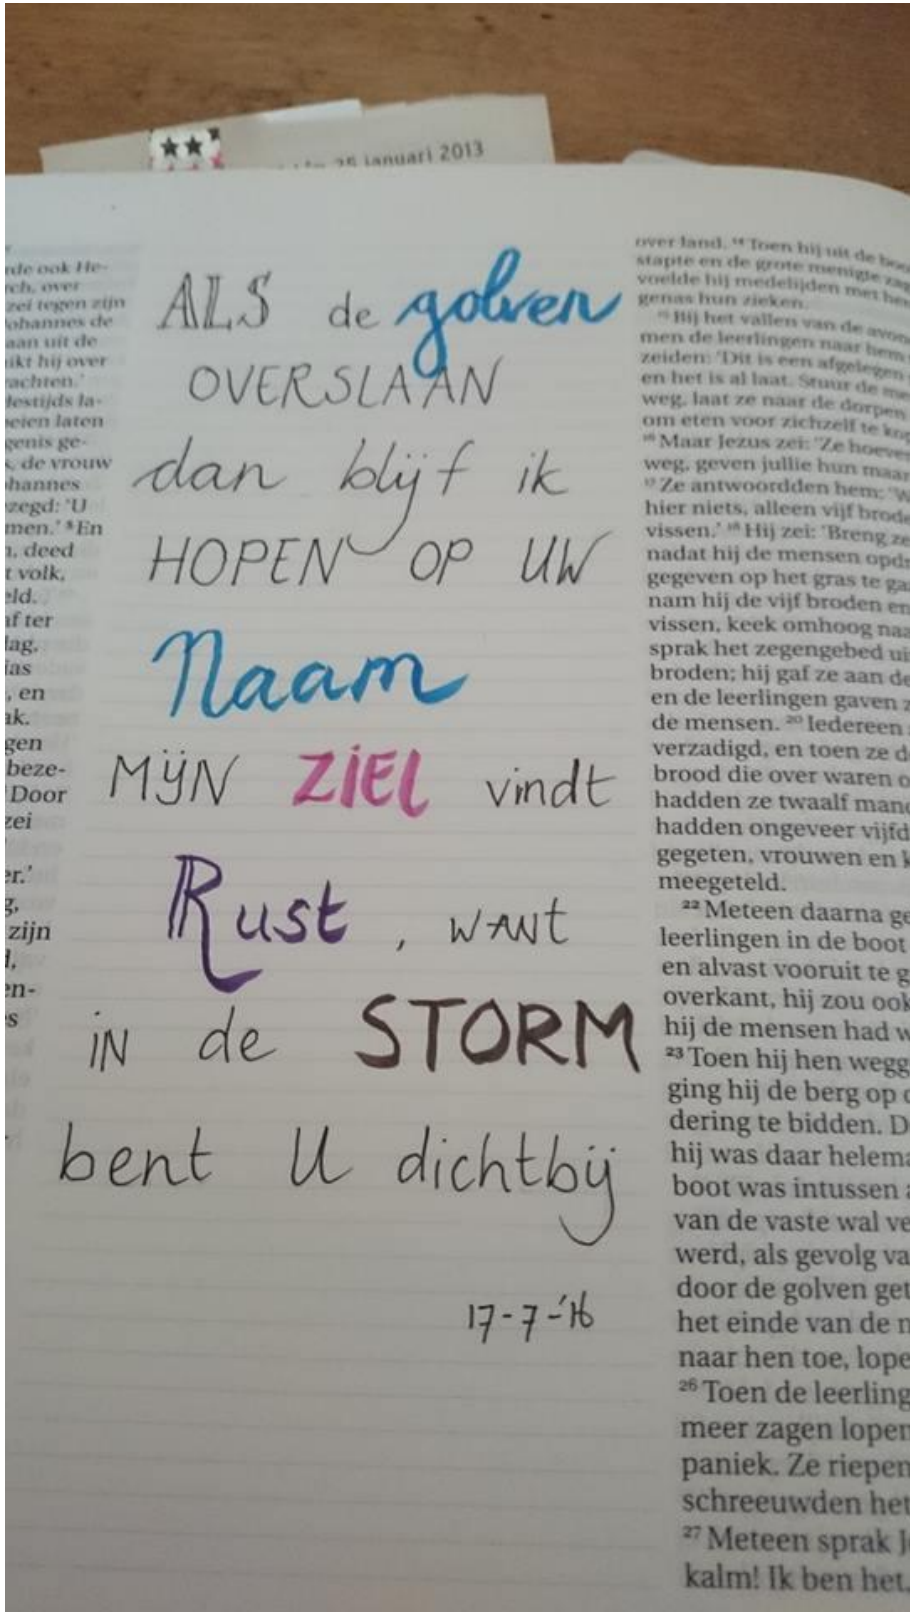 26 januari 2013
rde ook He-
rch, over
zei tegen zijn
ohannes de
aan uit de
ikt hij over
achten.'
destijds la-
eien laten
genis ge-
s, de vrouw
hannes
zegd: 'U
men.' ⁸En
n, deed
t volk,
eld.
af ter
lag,
ias
, en
ak.
gen
beze-
Door
zei
er.'
g,
zijn
d,
en-
s
ALS de golven
OVERSLAAN
dan blijf ik
HOPEN OP UW
Naam
MIJN ZIEL vindt
Rust, WANT
iN de STORM
bent U dichtbij
17-7-'16
over land. ¹⁴Toen hij uit de boo
stapte en de grote menigte zag
voelde hij medelijden met hen
genas hun zieken.
¹⁵Bij het vallen van de avon
men de leerlingen naar hem
zeiden: 'Dit is een afgelegen
en het is al laat. Stuur de me
weg, laat ze naar de dorpen
om eten voor zichzelf te kop
¹⁶Maar Jezus zei: 'Ze hoeven
weg, geven jullie hun maar
¹⁷Ze antwoordden hem: 'W
hier niets, alleen vijf brode
vissen.' ¹⁸Hij zei: 'Breng ze
nadat hij de mensen opdr
gegeven op het gras te ga
nam hij de vijf broden en
vissen, keek omhoog naa
sprak het zegengebed ui
broden; hij gaf ze aan de
en de leerlingen gaven z
de mensen. ²⁰Iedereen
verzadigd, en toen ze d
brood die over waren o
hadden ze twaalf mand
hadden ongeveer vijfd
gegeten, vrouwen en k
meegeteld.
²²Meteen daarna ge
leerlingen in de boot
en alvast vooruit te g
overkant, hij zou ook
hij de mensen had w
²³Toen hij hen wegg
ging hij de berg op o
dering te bidden. D
hij was daar helema
boot was intussen a
van de vaste wal ve
werd, als gevolg va
door de golven get
het einde van de n
naar hen toe, lope
²⁶Toen de leerling
meer zagen lopen
paniek. Ze riepen
schreeuwden het
²⁷Meteen sprak J
kalm! Ik ben het,